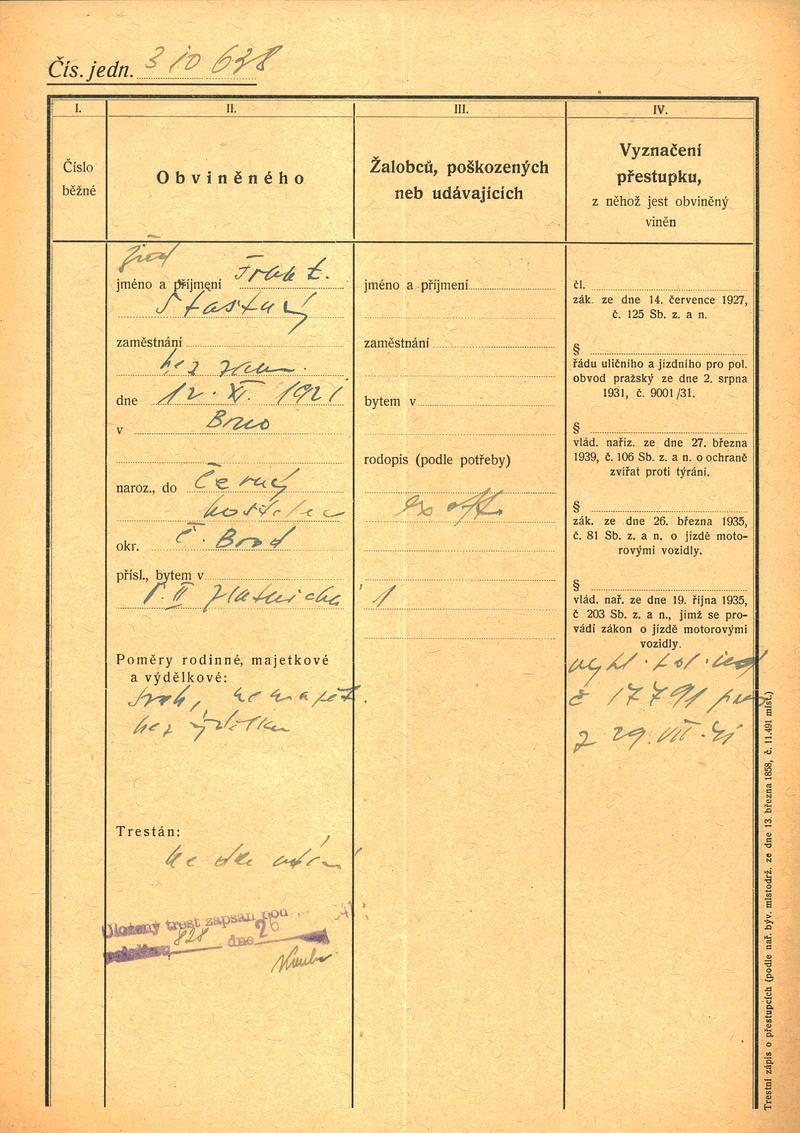 Čís. jedn. 310 638
I.
II.
III.
IV.
Číslo
běžné
Obviněného
Žalobců, poškozených
neb udávajících
Vyznačení
přestupku,
z něhož jest obviněný
viněn
žid
jméno a příjmení Frant.
Šťastný
zaměstnání
bez zam.
dne 12. XI. 1921
v Brno
naroz., do Černý
Kostelec
okr. Č. Brod
přísl., bytem v
P. II Zlatnická 1
Poměry rodinné, majetkové
a výdělkové:
svob, nemajet.
bez výdělku
Trestán:
ne dle udání
Uložený trest zapsán pod
položkou 828 dne 26
jméno a příjmení
zaměstnání
bytem v
rodopis (podle potřeby)
ex offo
čl.
zák. ze dne 14. července 1927,
č. 125 Sb. z. a n.
§
řádu uličního a jízdního pro pol.
obvod pražský ze dne 2. srpna
1931, č. 9001/31.
§
vlád. naříz. ze dne 27. března
1939, č. 106 Sb. z. a n. o ochraně
zvířat proti týrání.
§
zák. ze dne 26. března 1935,
č. 81 Sb. z. a n. o jízdě moto-
rovými vozidly.
§
vlád. nař. ze dne 19. října 1935,
č 203 Sb. z. a n., jímž se pro-
vádí zákon o jízdě motorovými
vozidly.
vyhl. pol. řed
č 17791 pres
z 29. VII. 41
Trestní zápis o přestupcích (podle nař. býv. místodrž. ze dne 13. března 1858, č. 11.491 míst.)